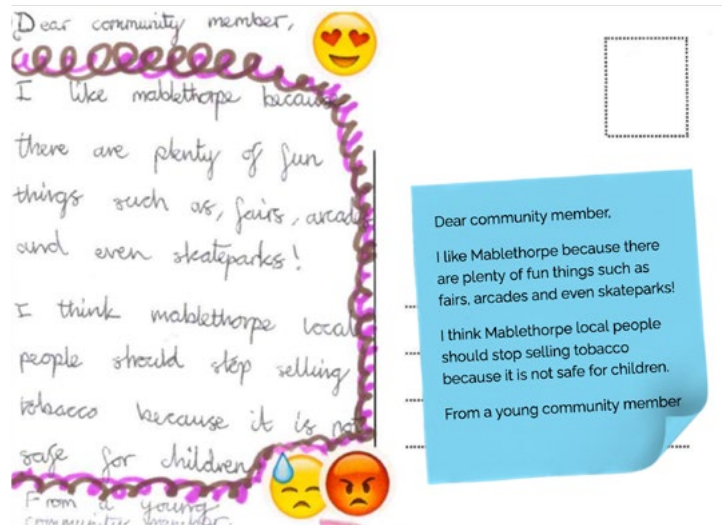 Dear community member,
I like mablethorpe because
there are plenty of fun
things such as, fairs, arcades
and even skateparks!
I think mablethorpe local
people should stop selling
tobacco because it is not
safe for children
From a young
community member.
Dear community member,
I like Mablethorpe because there
are plenty of fun things such as
fairs, arcades and even skateparks!
I think Mablethorpe local people
should stop selling tobacco
because it is not safe for children.
From a young community member